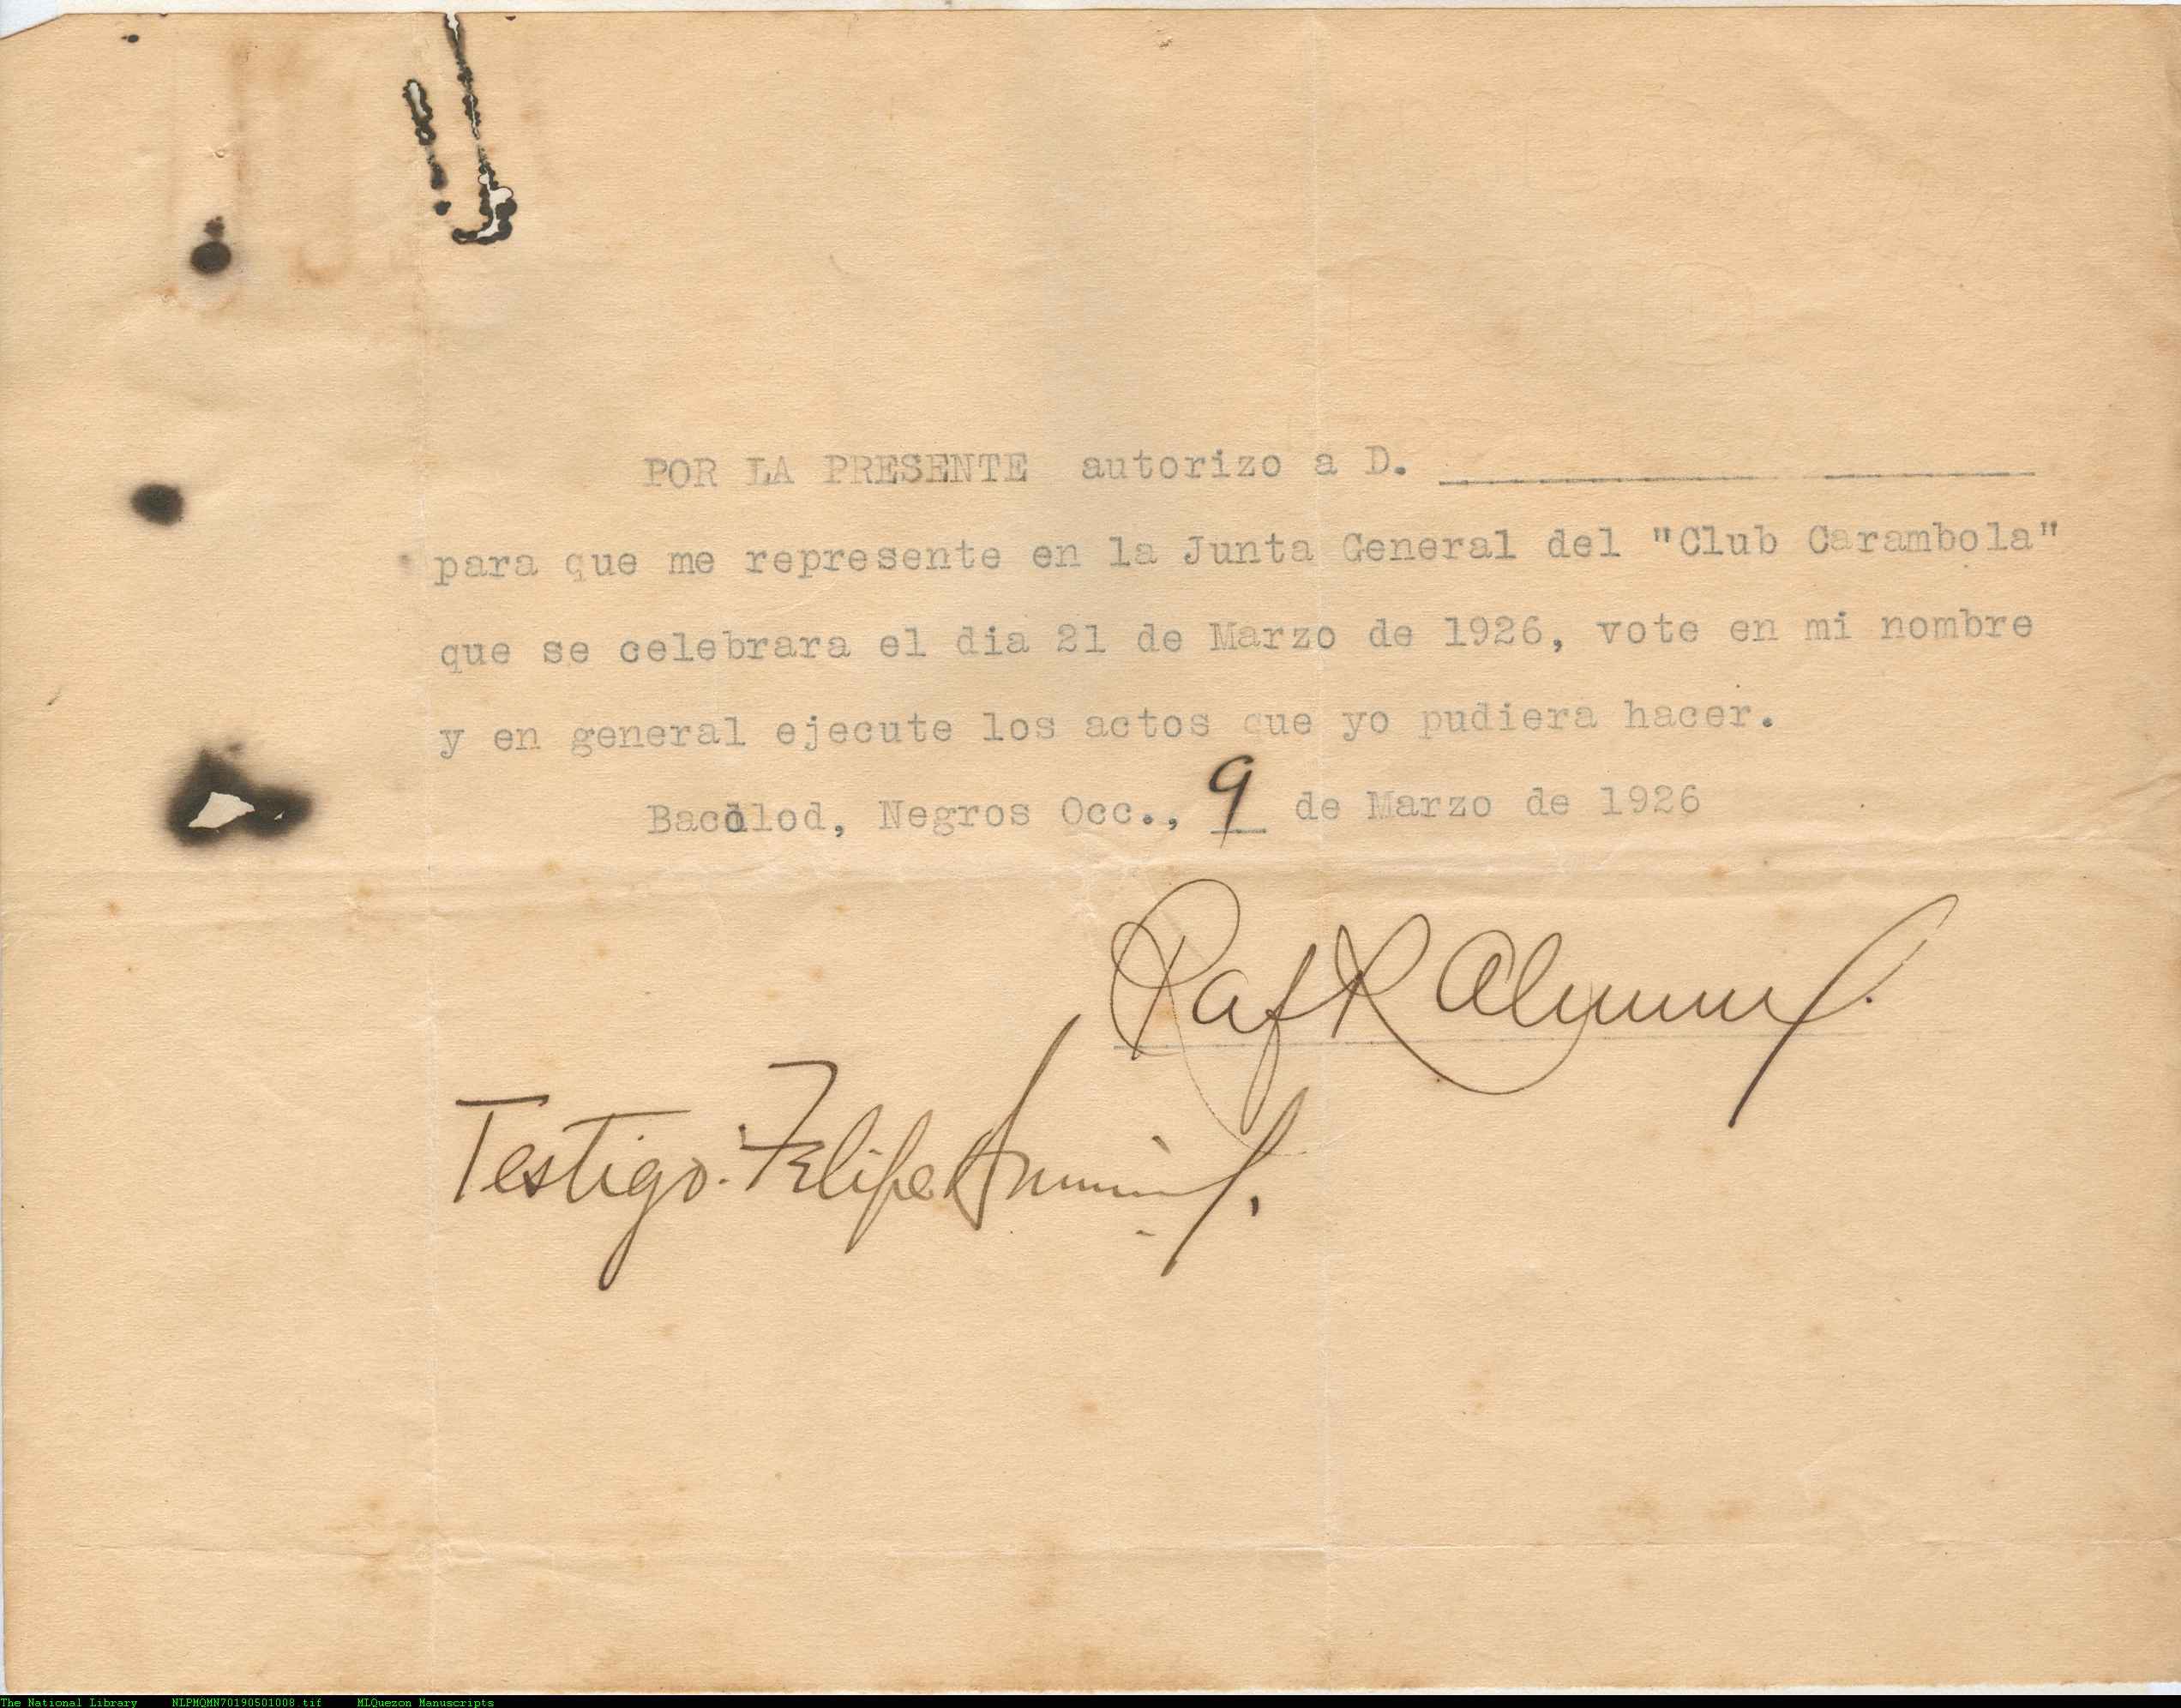 POR LA PRESENTE autorizo a D. ____________ ________
para que me represente en la Junta General del "Club Carambola"
que se celebrara el dia 21 de Marzo de 1926, vote en mi nombre
y en general ejecute los actos que yo pudiera hacer.
Bacolod, Negros Occ., 9 de Marzo de 1926
Raf R
Testigo. Felipe
The National Library NLPMQMN70190501008.tif MLQuezon Manuscripts